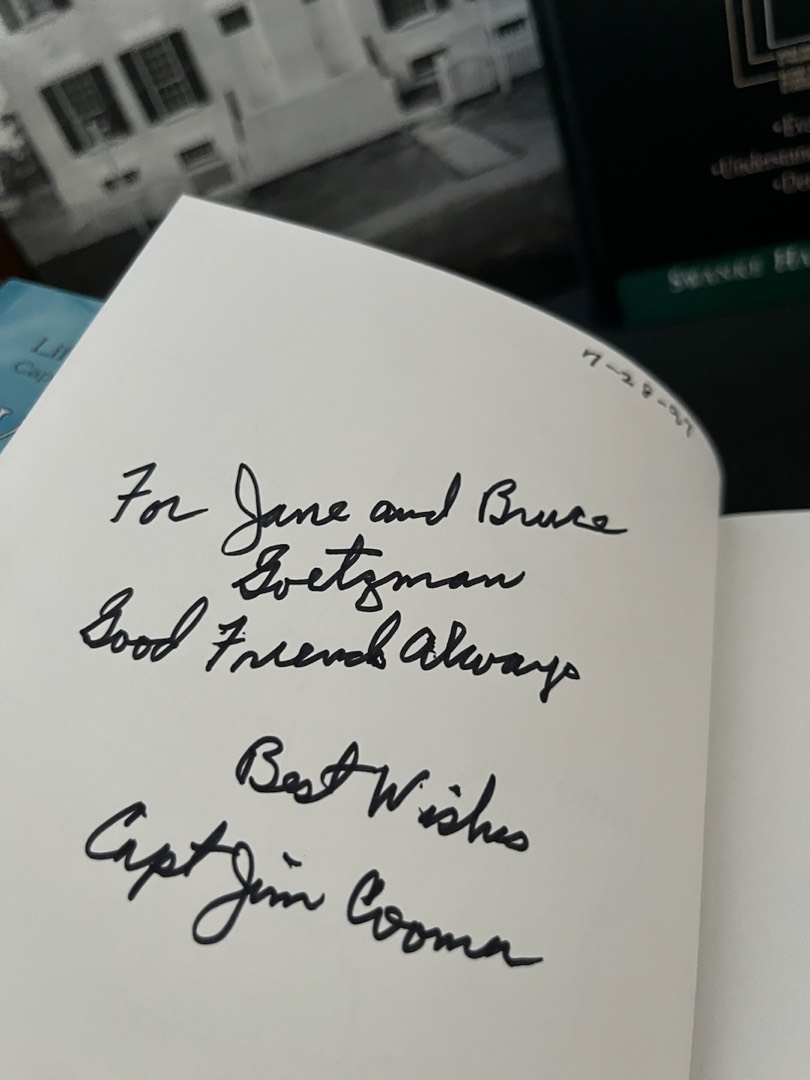 SWANKE HA
7-28-97
For Jane and Bruce
Goetzman
Good Friends Always
Best Wishes
Capt Jim Coomer